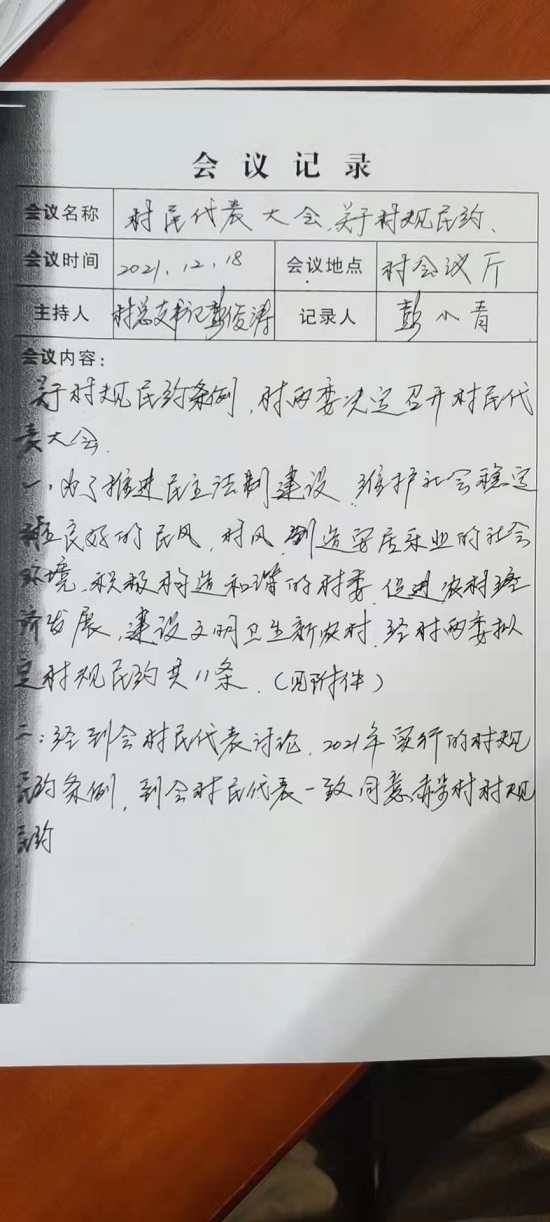 会议记录
会议名称 村民代表大会,关于村规民约、
会议时间 2021.12.18 会议地点 村会议厅
主持人 村总支书记彭俊涛 记录人 彭小青
会议内容:
关于村规民约条例,村两委决定召开村民代
表大会.
一,为了推进民主法制建设 维护社会稳定
良好的民风,村风,创造安居乐业的社会
环境,积极构造和谐的村委 促进农村经
济发展,建设文明卫生新农村,经村两委拟
定村规民约共11条.(见附件)
二:经到会村民代表讨论,2021年实行的村规
民约条例,到会村民代表一致同意 村村规
民约